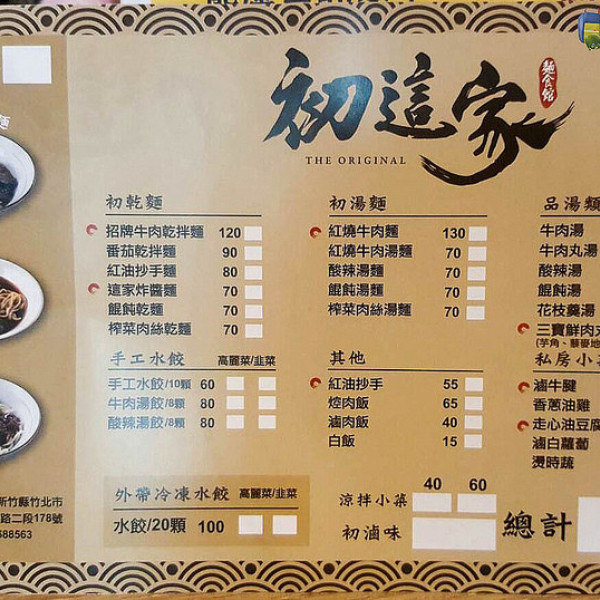 初這家
麵食館
THE ORIGINAL
初乾麵
招牌牛肉乾拌麵 120
番茄乾拌麵 90
紅油抄手麵 80
這家炸醬麵 70
餛飩乾麵 70
榨菜肉絲乾麵 70
手工水餃 高麗菜/韭菜
手工水餃/10顆 60
牛肉湯餃/8顆 80
酸辣湯餃/8顆 80
外帶冷凍水餃 高麗菜/韭菜
水餃/20顆 100
初湯麵
紅燒牛肉麵 130
紅燒牛肉湯麵 70
酸辣湯麵 70
餛飩湯麵 70
榨菜肉絲湯麵 70
其他
紅油抄手 55
焢肉飯 65
滷肉飯 40
白飯 15
40 60
涼拌小菜
初滷味
總計
品湯類
牛肉湯
牛肉丸湯
酸辣湯
餛飩湯
花枝羹湯
三寶鮮肉
(芋角、藜麥地
私房小
滷牛腱
香蔥油雞
走心油豆腐
滷白蘿蔔
燙時蔬
麵
新竹縣竹北市
路二段178號
588563